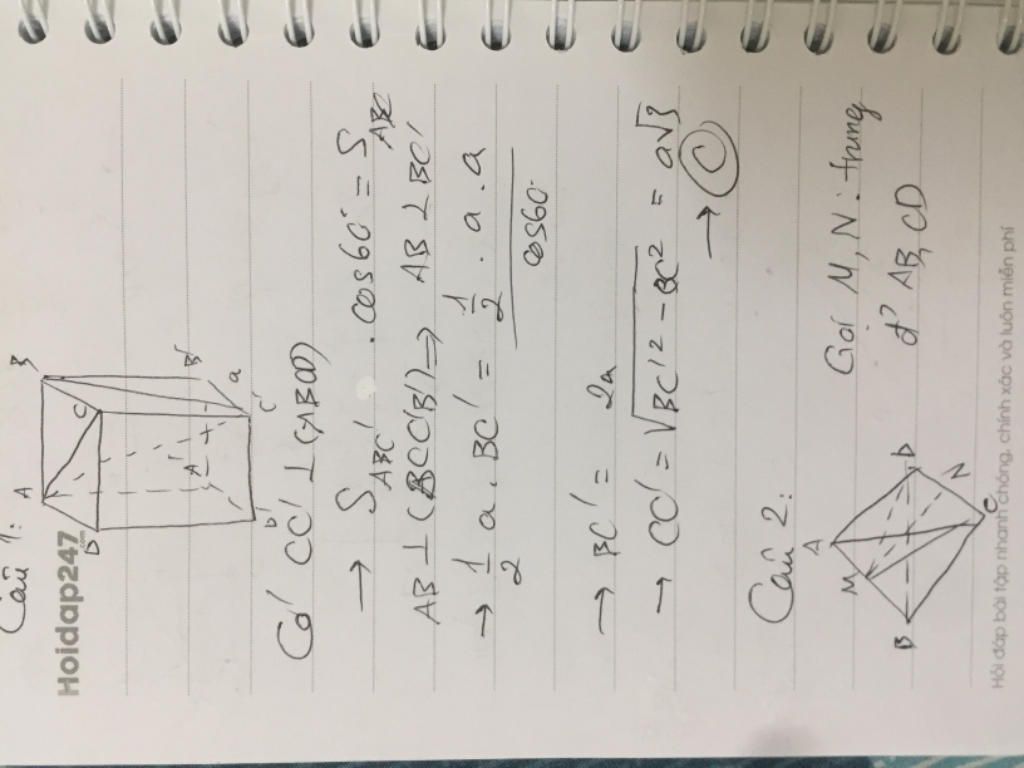 Câu 1:
Hoidap247
.com
A
B
D
C
A'
B'
a
D'
C'
Có CC' ⊥ (ABCD)
→ S ABC' . cos60° = S ABC
AB ⊥ (BCC'B') → AB ⊥ BC'
→ 1/2 a . BC' = 1/2 . a . a / cos60°
→ BC' = 2a
→ CC' = √BC'² - BC² = a√3
→ C
Câu 2:
Gọi M, N: trung
đ' AB, CD
A
M
B
D
N
C
Hỏi đáp bài tập nhanh chóng, chính xác và luôn miễn phí